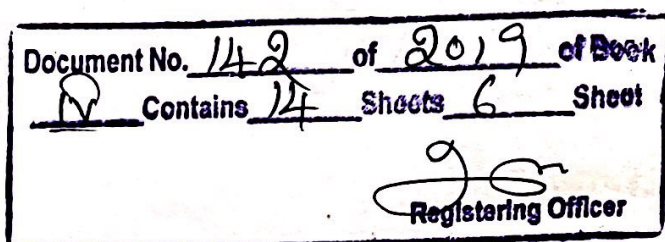 Document No. 142 of 2019 of Book
Contains 14 Sheets 6 Sheet
Registering Officer